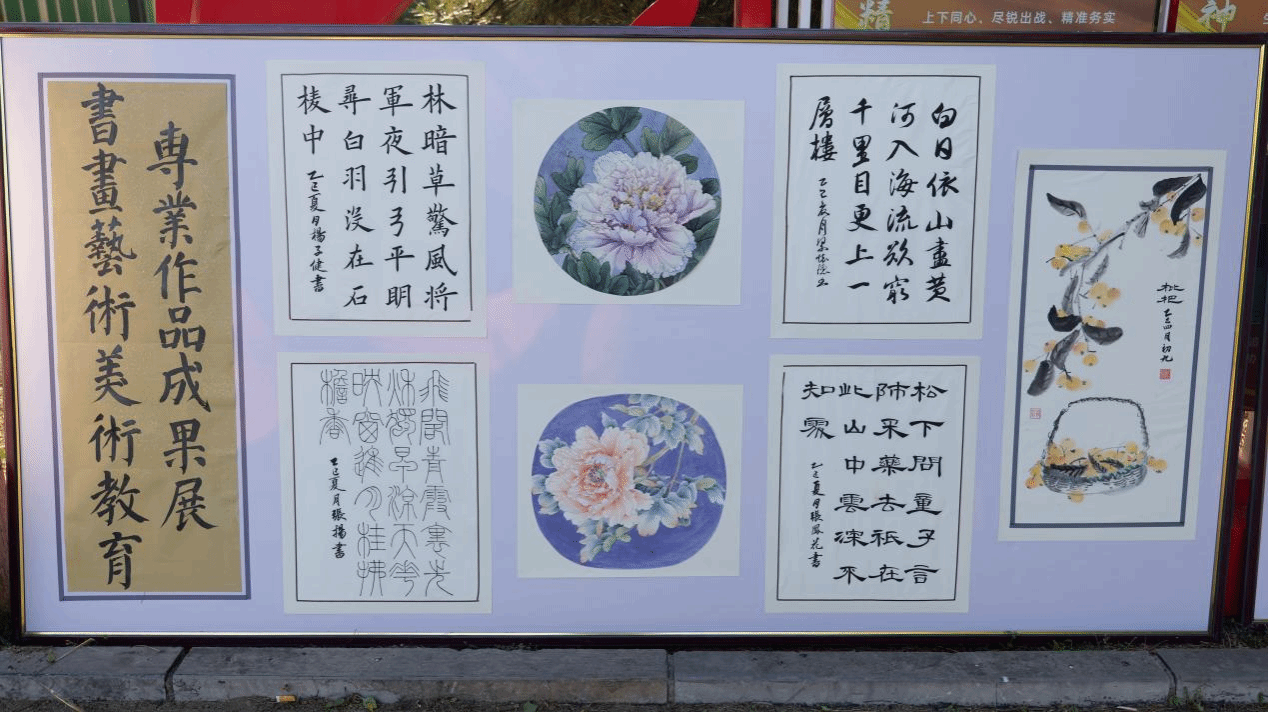 精
上下同心、尽锐出战、精准务实
神
書畫藝術美術教育
専業作品成果展
林暗草驚風将
軍夜引弓平明
尋白羽没在石
棱中
乙巳夏月楊子健書
飛閣青霞裏先
秋獨早涼天花
映窗近月桂拂
檐香
乙巳夏月張揚書
白日依山盡黄
河入海流欲窮
千里目更上一
層樓
松下問童子言
師采藥去祇在
此山中雲深不
知處
乙巳夏月張鳳花書
枇杷
乙巳四月初九